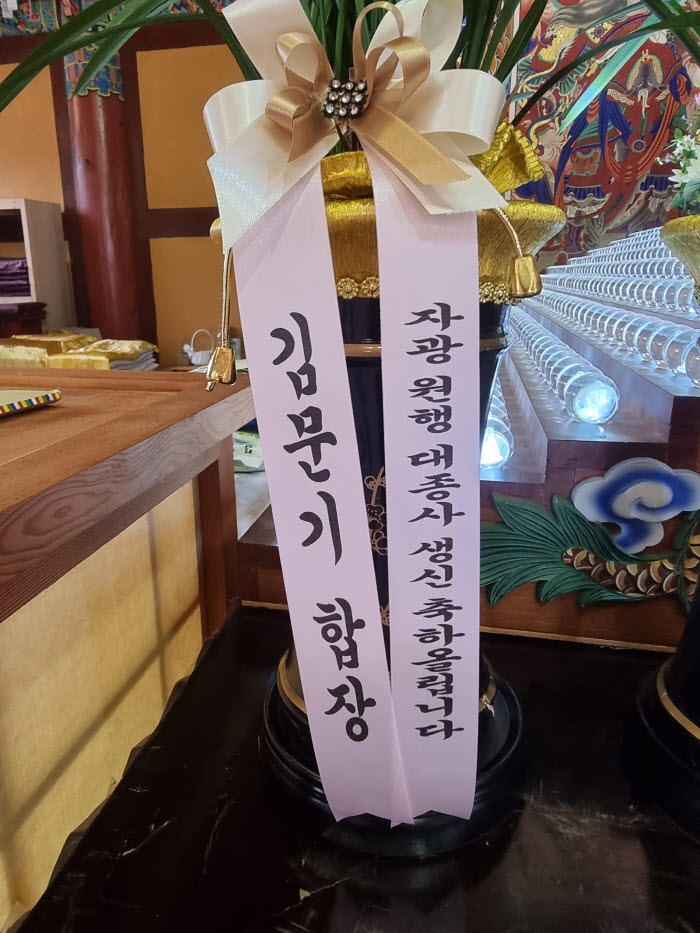 김문기 합장
자광 원행 대종사 생신 축하올립니다